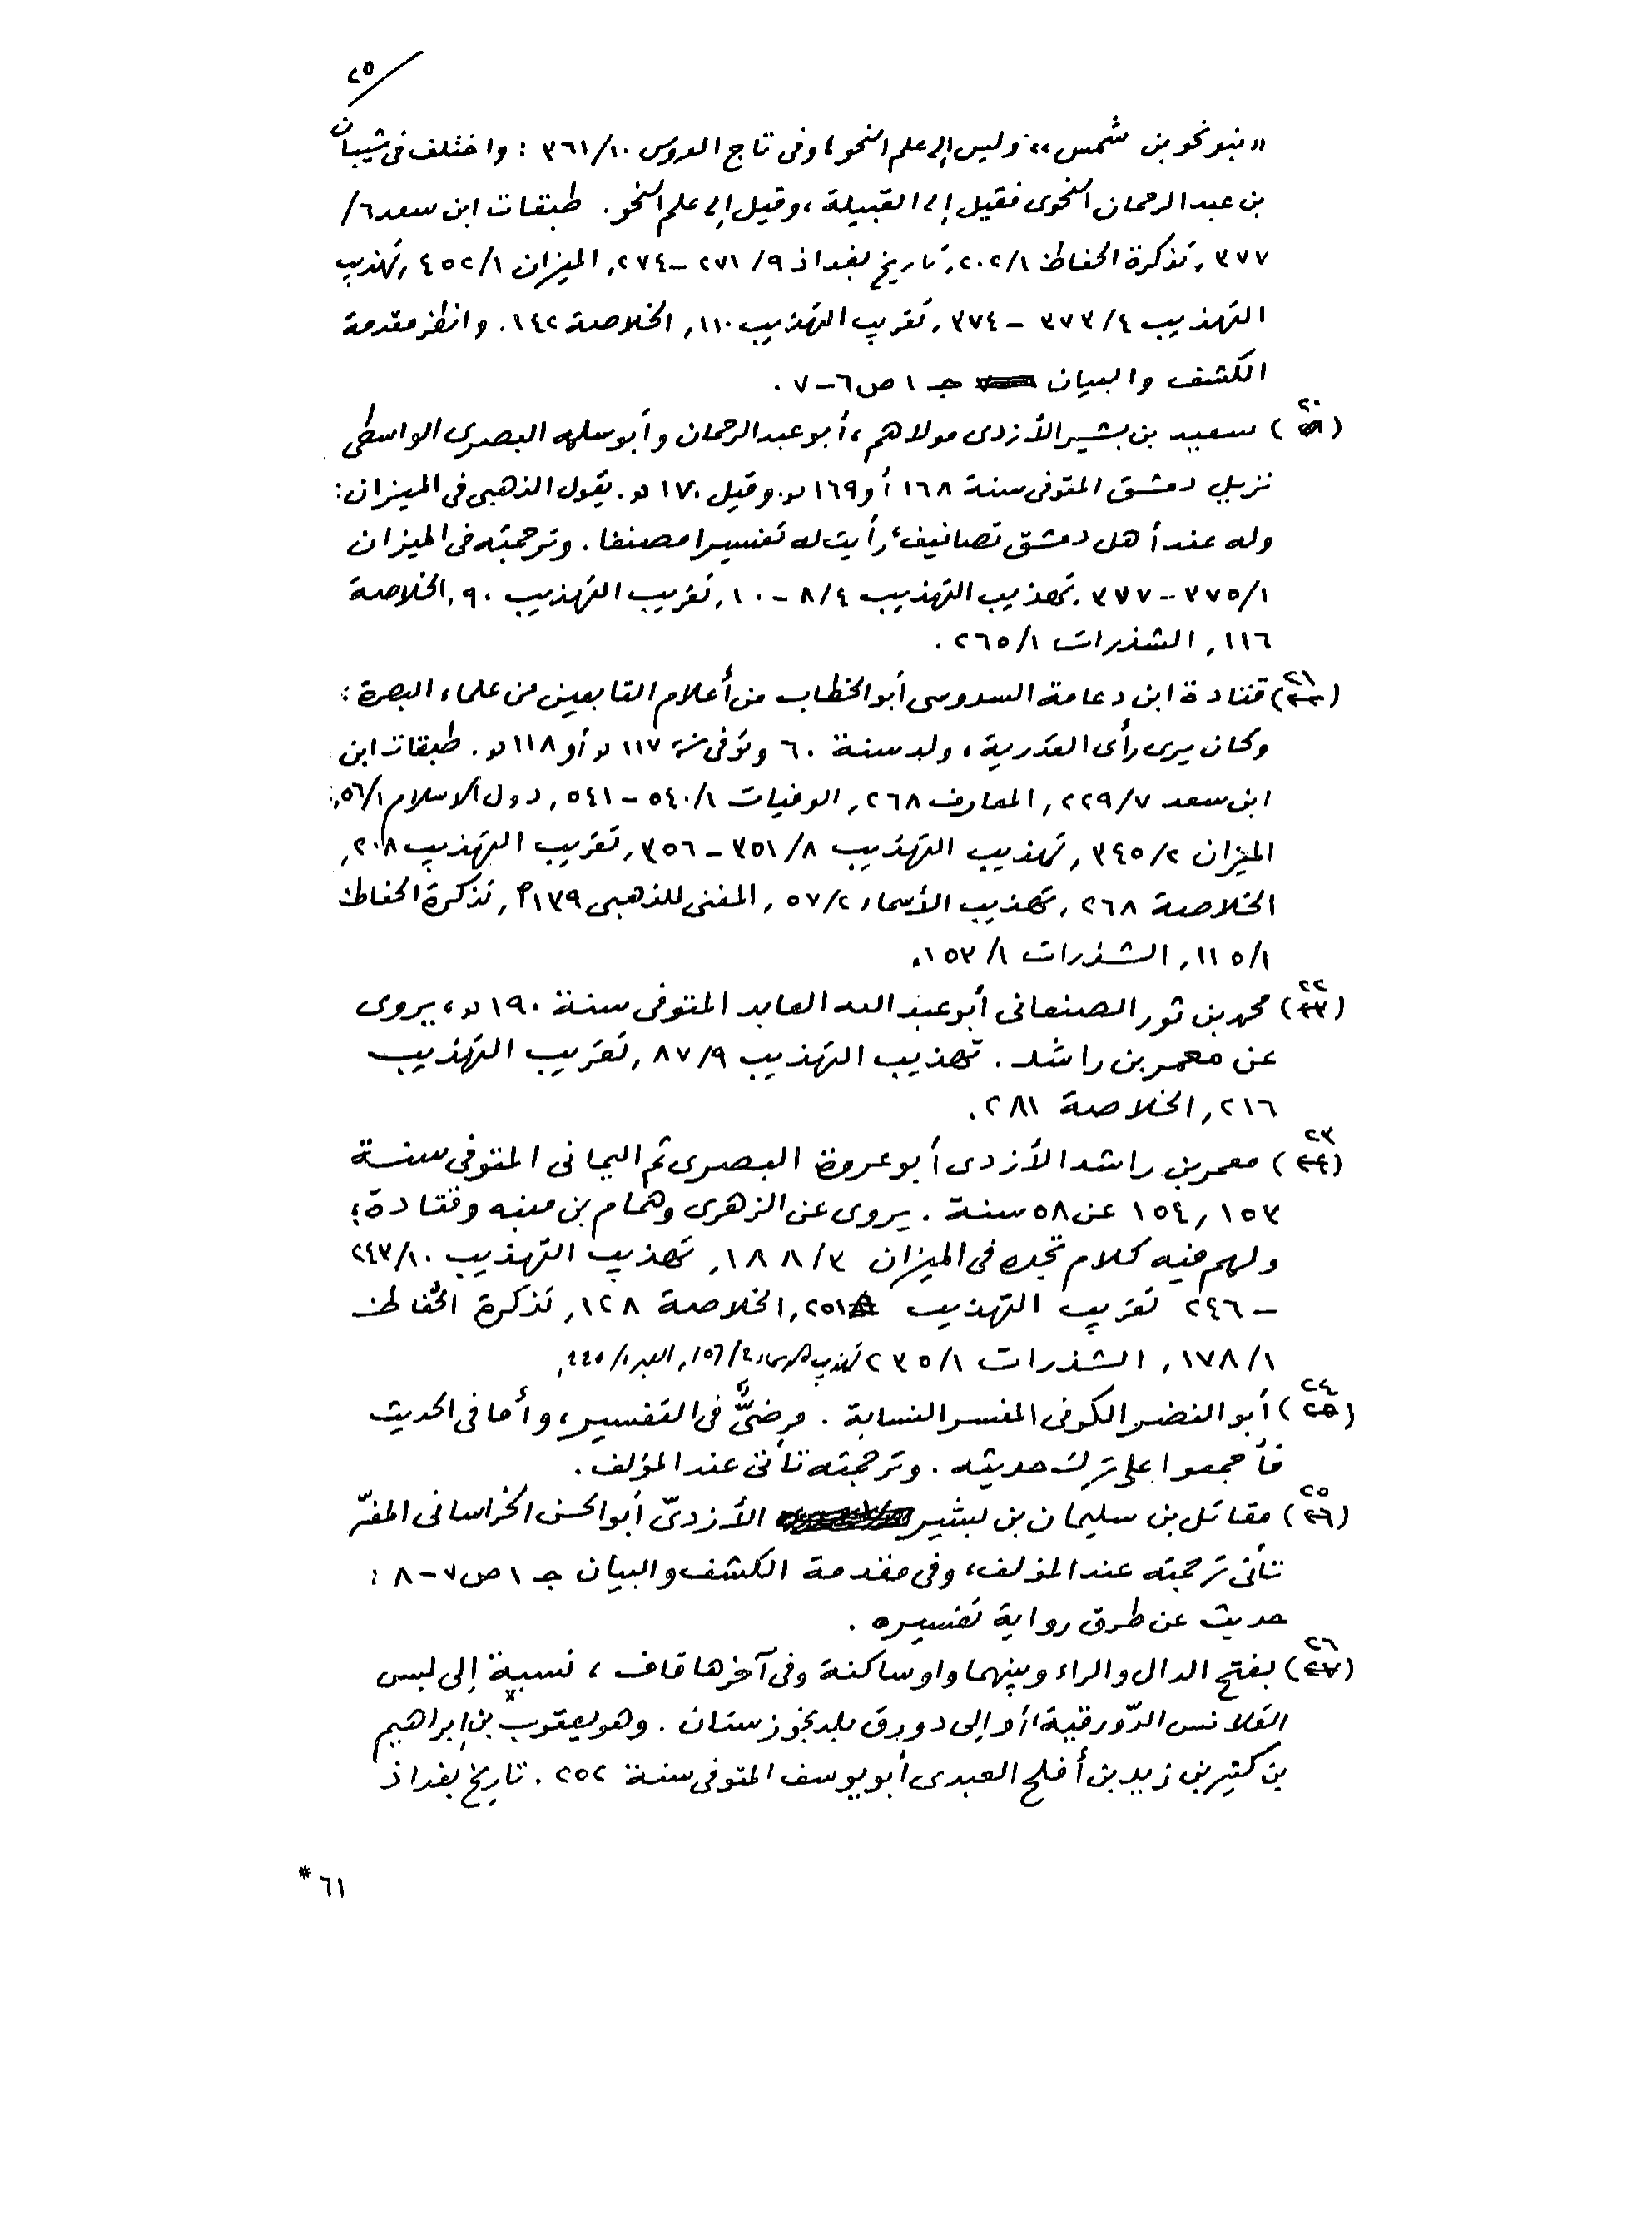 ٢٥/
«بنو نحو بن شمس» وليس إلى علم النحو، وفى تاج العروس ٣٦١/١٠ : واختلف فى شيبان
بن عبد الرحمان النحوى فقيل إلى القبيلة، وقيل إلى علم النحو. طبقات ابن سعد ٦/
٣٧٧, تذكرة الحفاظ ٢٠٢/١, تاريخ بغداذ ٩/ ٢٧١ - ٢٧٤, الميزان ٤٥٢/١, تهذيب
التهذيب ٣٧٣/٤ - ٣٧٤, تقريب التهذيب ١١٠, الخلاصة ١٤٢. وانظر مقدمة
الكشف والبيان جـ ١ ص ٦-٧ .
(٢٠) سعيد بن بشير الأزدى مولاهم، أبو عبد الرحمان وأبو سلمه البصرى الواسطى
نزيل دمشق المتوفى سنة ١٦٨ أو ١٦٩ هـ. وقيل ١٧٠ هـ. يقول الذهبى فى الميزان:
وله عند أهل دمشق تصانيف، رأيت له تفسيرا مصنفا. وترجمته فى الميزان
٣٧٥/١ - ٣٧٧, تهذيب التهذيب ٨/٤ - ١٠, تقريب التهذيب ٩٠, الخلاصة
١١٦, الشذرات ٢٦٥/١ .
(٢١) قتادة ابن دعامة السدوسى أبو الخطاب من أعلام التابعين من علماء البصرة:
وكان يرى رأى القدرية، ولد سنة ٦٠ وتوفى سنة ١١٧ هـ أو ١١٨ هـ. طبقات ابن
ابن سعد ٢٢٩/٧, المعارف ٢٦٨, الوفيات ٥٤٠/١ - ٥٤١, دول الاسلام ٥٦/١,
الميزان ٣٤٥/٢, تهذيب التهذيب ٣٥١/٨ - ٣٥٦, تقريب التهذيب ٢٠٨,
الخلاصة ٢٦٨, تهذيب الأسماء ٥٧/٢, المغنى للذهبى ١٣٩م, تذكرة الحفاظ
١١٥/١, الشذرات ١٥٣/١.
(٢٢) محمد بن ثور الصنعانى أبو عبد الله العابد المتوفى سنة ١٩٠ هـ، يروى
عن معمر بن راشد. تهذيب التهذيب ٨٧/٩, تقريب التهذيب
٢١٦, الخلاصة ٢٨١.
(٢٣) معمر بن راشد الأزدى أبو عروة البصرى ثم اليمانى المتوفى سنة
١٥٣, ١٥٤ عن ٥٨ سنة. يروى عن الزهرى وهمام بن منبه وقتادة؛
ولهم فيه كلام تجده فى الميزان ١٨٨/٣, تهذيب التهذيب ٢٤٣/١٠
- ٢٤٦ تقريب التهذيب ٢٥١, الخلاصة ١٢٨, تذكرة الحفاظ
١٧٨/١, الشذرات ٢٣٥/١ تهذيب الأسماء ١٥٦/٤, العبر ٢٢٥/١,
(٢٤) أبو النضر الكوفى المفسر النسابة. مرضىٌّ فى التفسير، وأما فى الحديث
فأجمعوا على ترك حديثه. وترجمته تأتى عند المؤلف.
(٢٥) مقاتل بن سليمان بن بشير الأزدىّ أبو الحسن الخراسانى المفسّر
تأتى ترجمته عند المؤلف، وفى مقدمة الكشف والبيان جـ ١ ص ٧-٨ :
حديث عن طرق رواية تفسيره .
(٢٦) بفتح الدال والراء وبينهما واو ساكنة وفى آخرها قاف، نسبة إلى لبس
القلانس الدّورقية، أو إلى دورق بلد بخوزستان. وهو يعقوب بن إبراهيم
بن كثير بن زيد بن أفلح العبدى أبو يوسف المتوفى سنة ٢٥٢. تاريخ بغداذ
٦١ *